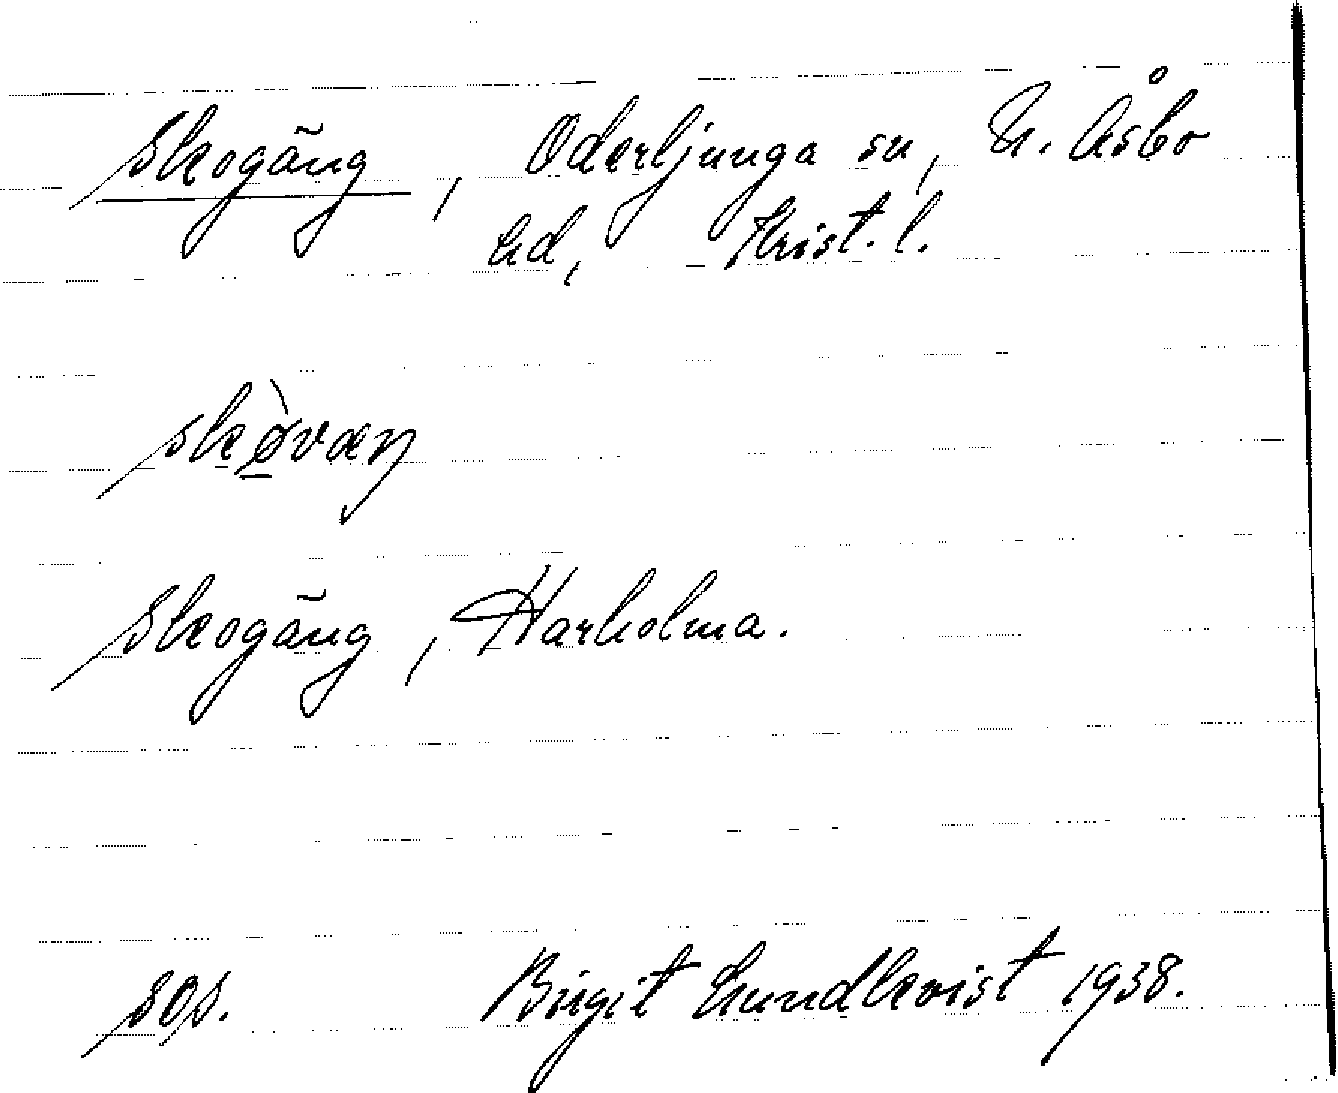 Skogäng, Oderljunga sn, N. Åsbo
hd, Krist. l.
skø̀væŋ
Skogäng, Harholma.
sɵs. Birgit Lundkvist 1938.